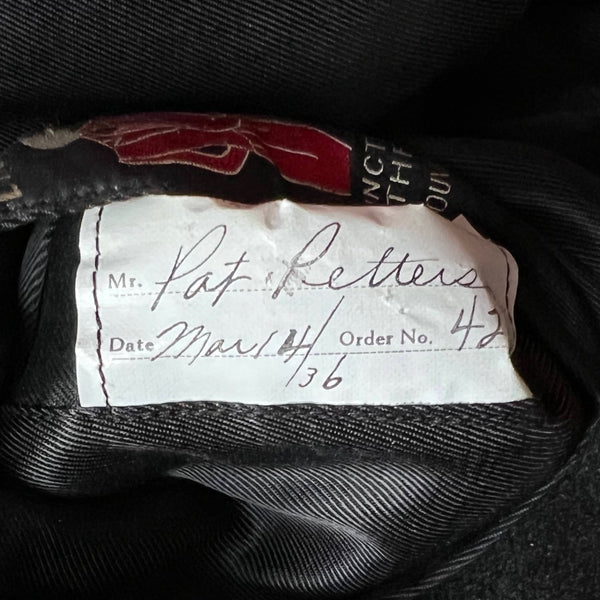 NCT
THE
OUN
Mr. Pat Petters
Date Mar 14/36 Order No. 42